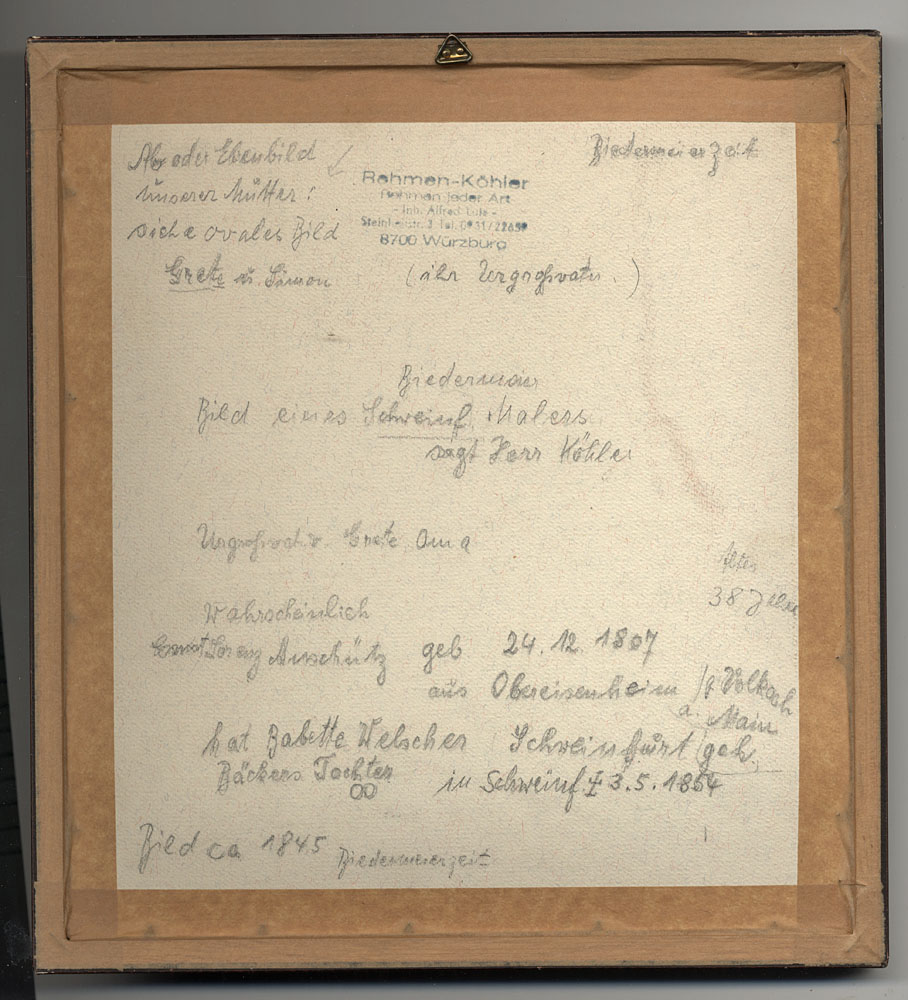 Ab oder Ebenbild
unserer Mutter!
siehe ovales Bild
Grete u. Simon
Biedermeierzeit
Rahmen-Köhler
Rahmen jeder Art
- Inh. Alfred
Tel. 0931/
8700 Würzburg
(ihr Urgroßvater.)
Biedermeier
Bild eines Schweinf. Malers
sagt Herr Köhler
Grete Oma
Alter
38 Jahre
Wahrscheinlich
Ernst Lorenz geb 24. 12. 1807
aus Obereisenheim / Volkach
a. Main
hat Babette Welscher Schweinfurt geh.
Bäckers Tochter in Schweinf. 3. 5. 1864
Bild ca 1845 Biedermeierzeit